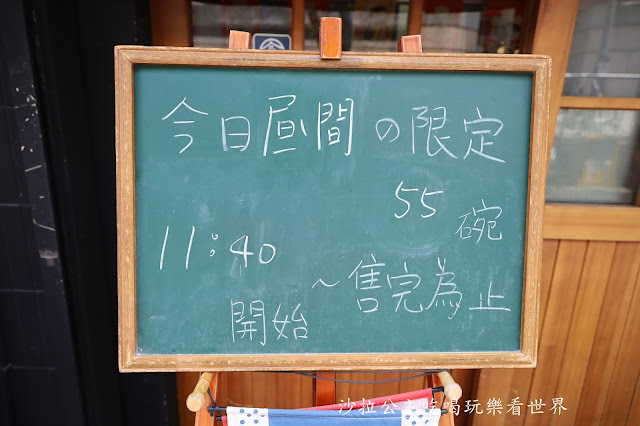 今日昼間の限定
55碗
11:40
開始～售完為止
沙拉公主吃喝玩樂看世界